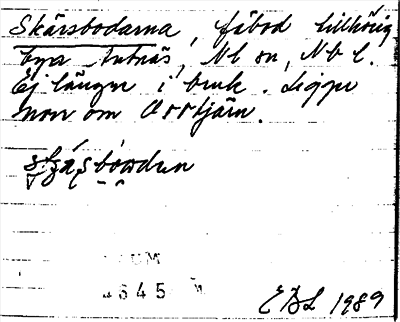 Skärsbodarna, fäbod tillhörig
byn Intnäs, N l sn, N b l.
Ej längre i bruk. Ligger
norr om Osstjärn.
UM
4645
EBL 1989